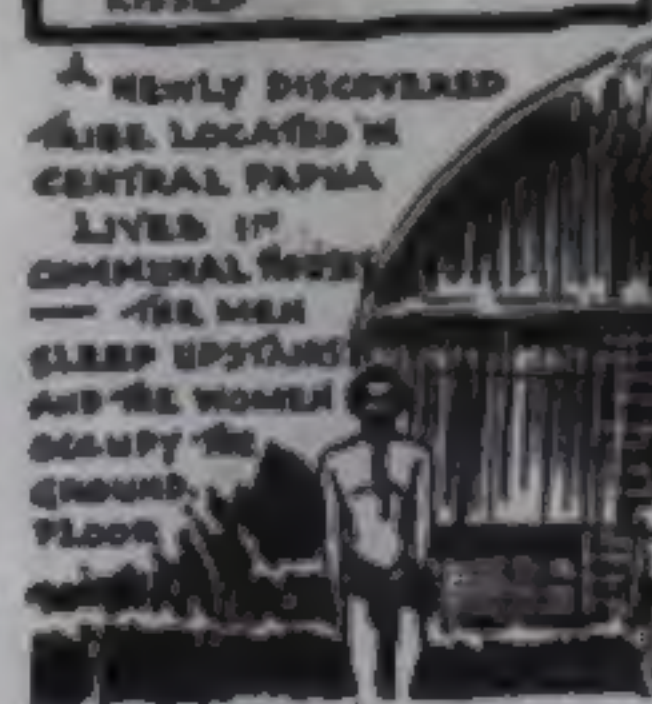 KISSED
A NEWLY DISCOVERED
TRIBE LOCATED IN
CENTRAL PAPUA
LIVES IN
COMMUNAL HOUSES
— THE MEN
SLEEP UPSTAIRS
AND THE WOMEN
OCCUPY THE
GROUND
FLOOR